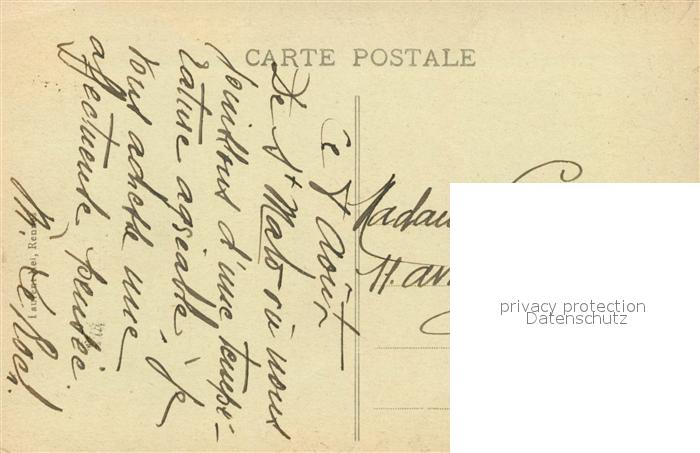 CARTE POSTALE
Ce 8 Août
De St Malo où nous
jouissons d'une tempé-
rature agréable, je
vous adresse une
affectueuse pensée
M. Le
Rennes
Madame
11. av
privacy protection
Datenschutz